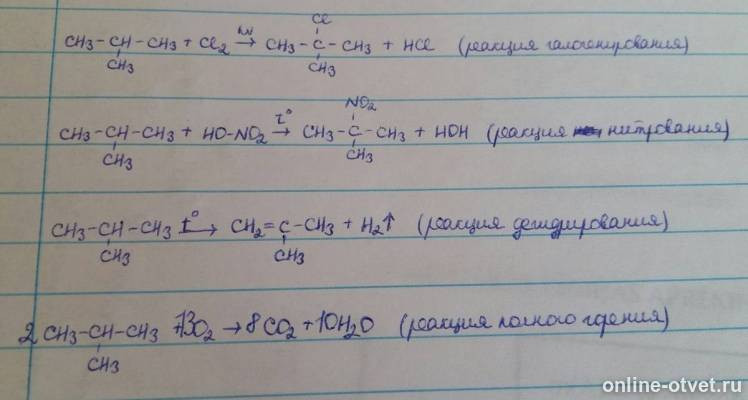 Cl
CH3-CH-CH3 + Cl2 hν→ CH3-C-CH3 + HCl (реакция галогенирования)
CH3 CH3
NO2
CH3-CH-CH3 + HO-NO2 t°→ CH3-C-CH3 + HOH (реакция нитрования)
CH3 CH3
CH3-CH-CH3 t°→ CH2=C-CH3 + H2↑ (реакция дегидрирования)
CH3 CH3
2 CH3-CH-CH3 + 13O2 → 8CO2 + 10H2O (реакция полного горения)
CH3
online-otvet.ru